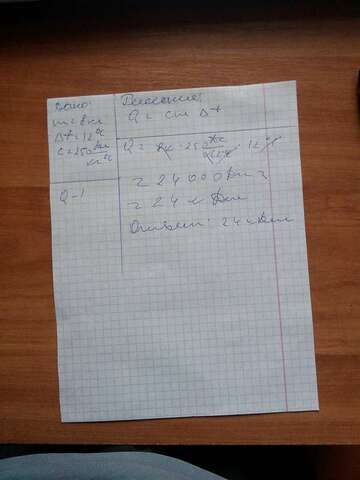 Дано:
m = 8 кг
Δt = 12 °C
c = 250 Дж
кг °C
Q - ?
Решение:
Q = cm Δt
Q = 8кг · 250 Дж · 12 °C
кг°C
= 24 000 Дж =
= 24 кДж
Ответ: 24 кДж